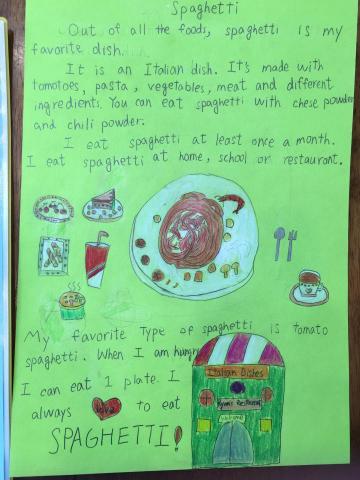 Spaghetti
Out of all the foods, spaghetti is my
favorite dish.
It is an Italian dish. It's made with
tomatoes, pasta, vegetables, meat and different
ingredients. You can eat spaghetti with chese powder
and chili powder.
I eat spaghetti at least once a month.
I eat spaghetti at home, school or restaurant.
My favorite Type of spaghetti is tomato
spaghetti. When I am hungry
I can eat 1 plate. I
always love to eat
SPAGHETTI!
Italian Dishes
Restaurant